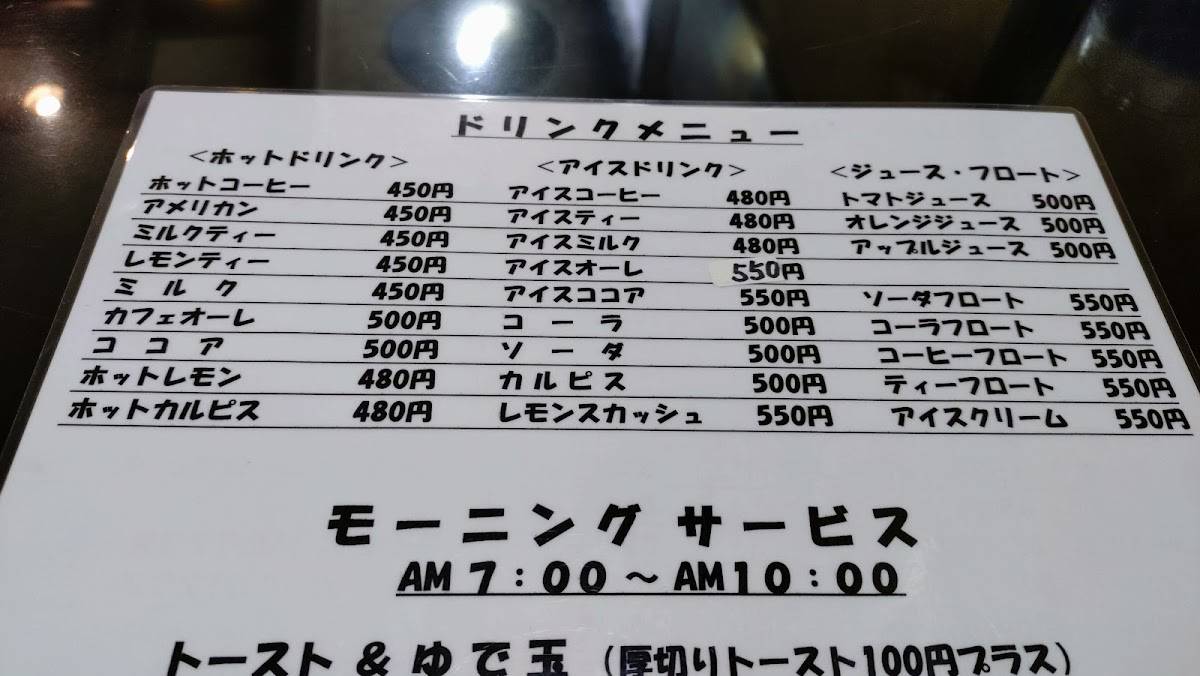 ドリンクメニュー
<ホットドリンク> <アイスドリンク> <ジュース・フロート>
ホットコーヒー 450円 アイスコーヒー 480円 トマトジュース 500円
アメリカン 450円 アイスティー 480円 オレンジジュース 500円
ミルクティー 450円 アイスミルク 480円 アップルジュース 500円
レモンティー 450円 アイスオーレ 550円
ミルク 450円 アイスココア 550円 ソーダフロート 550円
カフェオーレ 500円 コーラ 500円 コーラフロート 550円
ココア 500円 ソーダ 500円 コーヒーフロート 550円
ホットレモン 480円 カルピス 500円 ティーフロート 550円
ホットカルピス 480円 レモンスカッシュ 550円 アイスクリーム 550円
モーニングサービス
AM7:00～AM10:00
トースト&ゆで玉(厚切りトースト100円プラス)